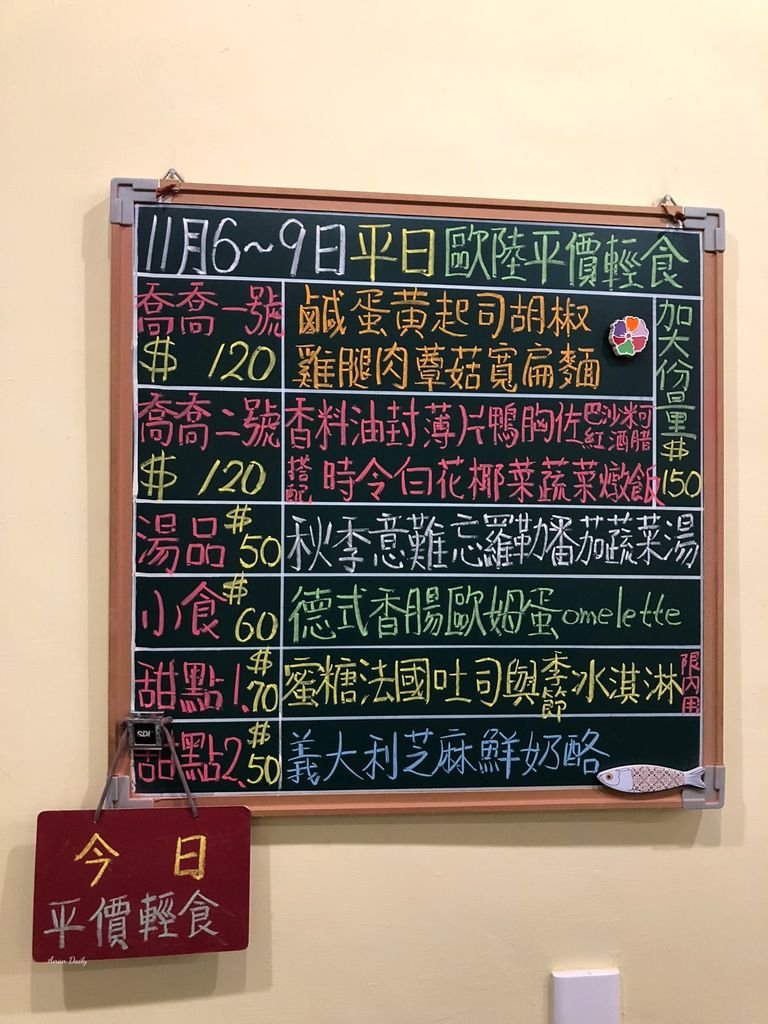 11月6~9日平日歐陸平價輕食
喬喬一號
$ 120
鹹蛋黃起司胡椒
雞腿肉蕈菇寬扁麵
加大份量$150
喬喬二號
$ 120
香料油封薄片鴨胸佐巴沙米可紅酒醋
搭配時令白花椰菜蔬菜燉飯
湯品$50
秋季意難忘羅勒番茄蔬菜湯
小食$60
德式香腸歐姆蛋omelette
甜點1.$70
蜜糖法國吐司與季節冰淇淋限內用
甜點2.$50
義大利芝麻鮮奶酪
SDI
今日
平價輕食
Anan Daily